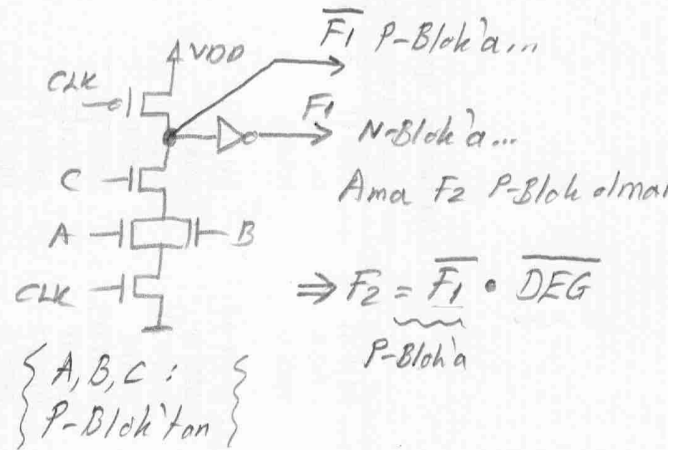 F1̅ P-Blok'a...
VDD
CLK
F1
N-Blok'a...
C
Ama F2 P-Blok olmal
A
B
CLK
⇒ F2 = F1̅ • D̅E̅G̅
P-Blok'a
{ A, B, C : {
{ P-Blok'tan {